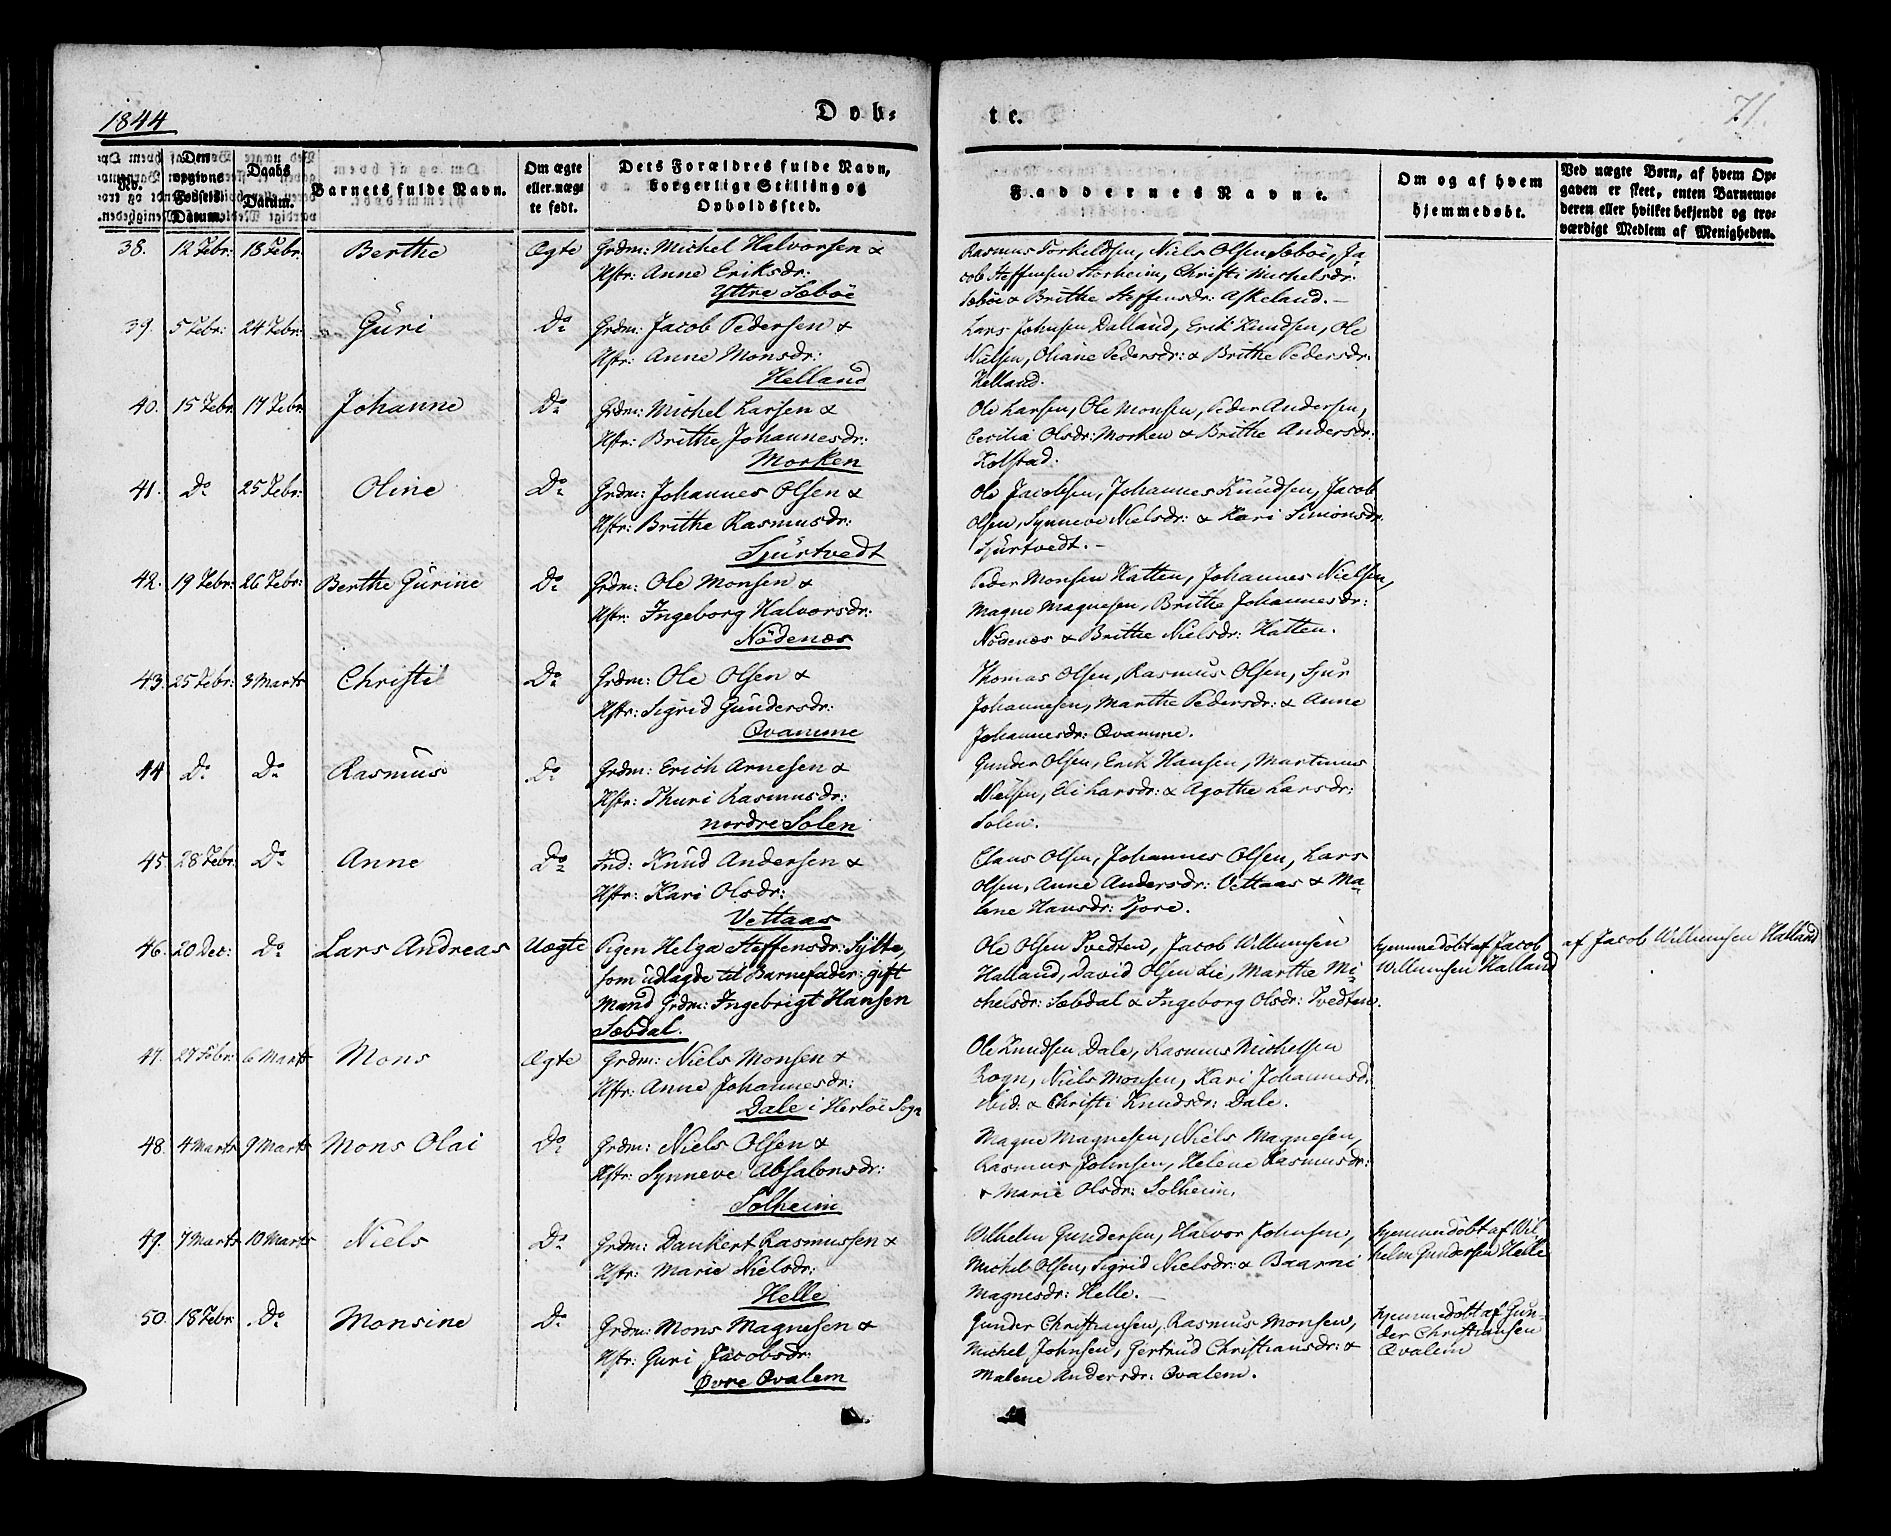 1844
Døb-
te.
71.
No.
Den opgivne Fødsels Datum.
Daabs Datum.
Barnets fulde Navn.
Om ægte eller uægte født.
Dets Forældres fulde Navn, borgerlige Stilling og Opholdssted.
Faddernes Navne.
Om og af hvem hjemmedøbt.
Ved uægte Børn, af hvem Opgaven er skeet, enten Barnemoderen eller hvilket bekjendt og troværdigt Medlem af Menigheden.
38. 12 Febr: 18 Febr: Berthe Ægte Grdm: Michel Halvorsen &
Hstr: Anne Eriksdr:
Yttre Sæböe
Rasmus Torkildsen, Niels Olsen Sæböe, Ja-
cob Steffensen Storheim, Christi Michelsdr:
Sæböe & Brithe Steffensdr: Askeland. —
39. 5 Febr: 24 Febr: Guri Do Grdm: Jacob Pedersen &
Hstr: Anne Monsdr:
Helland
Lars Johnsen Dalland, Erik Knudsen, Ole
Nielsen, Oliane Pedersdr: & Brithe Pedersdr:
Helland.
40. 15 Febr. 17 Febr. Johanne Do Grdm: Michel Larsen &
Hstr: Brithe Johannesdr:
Morken
Ole Larsen, Ole Monsen, Peder Andersen,
Cecilia Olsdr: Morken & Brithe Andersdr:
Kolstad.
41. Do 25 Febr: Oline Do Grdm: Johannes Olsen &
Hstr: Brithe Rasmusdr:
Sjurtvedt
Ole Jacobsen, Johannes Knudsen, Jacob
Olsen, Synneve Nielsdr: & Kari Simonsdr:
Sjurtvedt. —
42. 19 Febr: 26 Febr: Berthe Gurine Do Grdm: Ole Monsen &
Hstr: Ingeborg Halvorsdr:
Nödenæs
Peder Monsen Hatten, Johannes Nielsen,
Magne Magnesen, Brithe Johannesdr:
Nödenæs & Brithe Nielsdr: Hatten.
43. 25 Febr: 3 Marts Christi Do Grdm: Ole Olsen &
Hstr: Sigrid Gundersdr:
Qvamme
Thomas Olsen, Rasmus Olsen, Sjur
Johannesen, Marthe Pedersdr: & Anne
Johannesdr: Qvamme.
44 Do Do Rasmus Do Grdm: Erich Arnesen &
Hstr: Thuri Rasmusdr:
nordre Solen
Gunder Olsen, Erik Hansen, Martinus
Nielsen, Eli Larsdr: & Agothe Larsdr:
Solen.
45. 28 Febr: Do Anne Do Ind: Knud Andersen &
Hstr: Kari Olsdr:
Vettaas
Claus Olsen, Johannes Olsen, Lars
Olsen, Anne Andersdr: Vettaas & Ma-
lene Hansdr: Fjore.
46. 20 Dec: Do Lars Andreas Uægte Pigen Helga Steffensdr: Sylte,
som udlagde til Barnefader: gift
Mand Grdm: Ingebrigt Hansen
Sæbdal.
Ole Olsen Tvedten, Jacob Willumsen
Halland, David Olsen Lie, Marthe Mi-
chelsdr: Sæbdal & Ingeborg Olsdr: Tvedten.
hjemmedöbt af Jacob
Willumsen Halland
af Jacob Willumsen Halland
47. 27 Febr: 6 Marts Mons Ægte Grdm: Niels Monsen &
Hstr: Anne Johannesdr:
Dale i Herlöe Sogn
Ole Knudsen Dale, Rasmus Michelsen
Rogn, Niels Monsen, Kari Johannesdr:
ibid: & Christi Knudsdr: Dale.
48. 4 Marts 9 Marts Mons Olai Do Grdm: Niels Olsen &
Hstr: Synneve Absalonsdr:
Solheim
Magne Magnesen, Niels Magnesen,
Rasmus Johnsen, Helene Rasmusdr:
& Marie Olsdr: Solheim.
49. 7 Marts 10 Marts Niels Do Grdm: Dankert Rasmussen &
Hstr: Marie Nielsdr:
Helle
Wilhelm Gundersen, Halvor Johnsen,
Michel Olsen, Sigrid Nielsdr: & Baarni
Magnesdr: Helle. —
hjemmedöbt af Wil-
helm Gundersen Helle
50. 18 Febr: Do Monsine Do Grdm: Mons Magnesen &
Hstr: Guri Jacobsdr:
Øvre Qvalem
Gunder Christiansen, Rasmus Monsen,
Michel Johnsen, Gertrud Christiansdr: &
Malene Andersdr: Qvalem.
hjemmedöbt af Gun-
der Christiansen
Qvalem